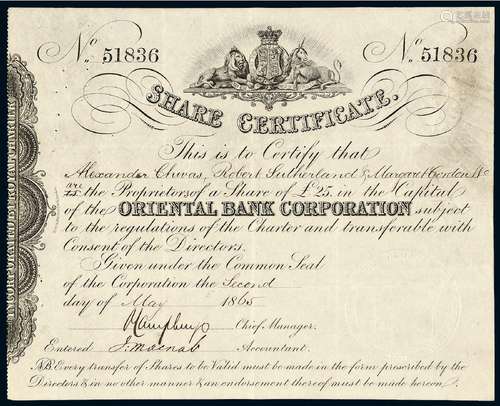 No. 51836
No. 51836
SHARE CERTIFICATE.
This is to Certify that
Alexander Chivas, Robert Sutherland & Margaret Gordon
are
is the Proprietors of a Share of £25. in the Capital
of the ORIENTAL BANK CORPORATION subject
to the regulations of the Charter and transferable with
Consent of the Directors.
Given under the Common Seal
of the Corporation the Second
day of May 1865
Chief Manager.
Entered J. Macnab Accountant.
NB. Every transfer of Shares to be Valid must be made in the form prescribed by the
Directors & in no other manner & an endorsement thereof must be made hereon.